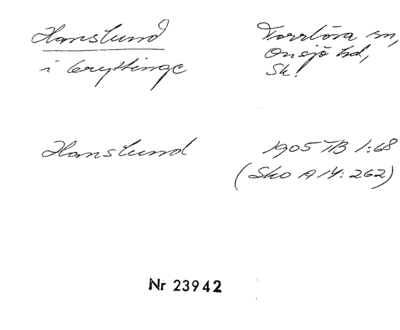 Hanslund
i Gryttinge
Torrlösa sn,
Onsjö hd,
Sk.
Hanslund
1905 TB 1:68
(Sko A 14:262)
Nr 23942